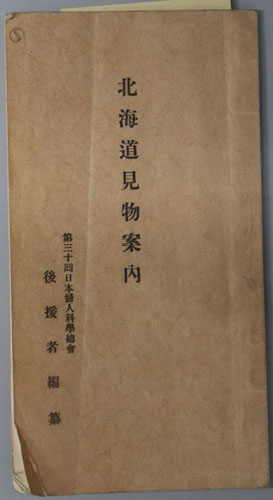 北海道見物案內
第三十回日本婦人科學總會
後援者編纂